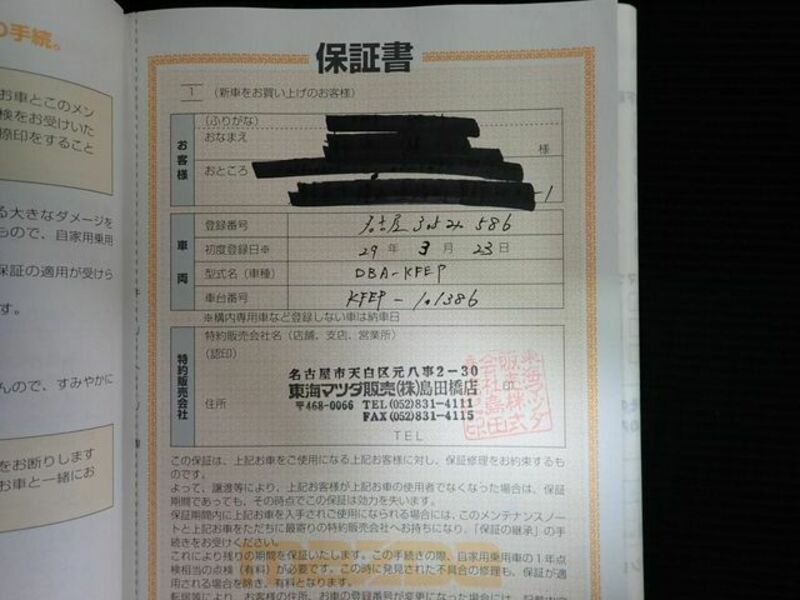 の手続。
お車とこのメン
検をお受けいた
捺印をすること
る大きなダメージを
もので、自家用乗用
保証の適用が受けら
す。
んので、すみやかに
をお断りします
お車と一緒にお
保証書
1 (新車をお買い上げのお客様)
お客様
(ふりがな)
おなまえ 様
おところ -1
車両
登録番号 名古屋 586
初度登録日※ 29年 3月 23日
型式名(車種) DBA-KFEP
車台番号 KFEP-101386
※構内専用車など登録しない車は納車日
特約販売会社
特約販売会社名(店舗、支店、営業所)
(認印)
名古屋市天白区元八事2-30
東海マツダ販売(株)島田橋店 印
住所
〒468-0066 TEL(052)831-4111
FAX(052)831-4115
TEL
この保証は、上記お車をご使用になる上記お客様に対し、保証修理をお約束するも
のです。
よって、譲渡等により、上記お客様が上記お車の使用者でなくなった場合は、保証
期間であっても、その時点でこの保証は効力を失います。
保証期間内に上記お車を入手されご使用になられる場合には、このメンテナンスノー
トと上記お車をただちに最寄りの特約販売会社へお持ちになり、「保証の継承」の手
続きをお受けください。
これにより残りの期間を保証いたします。この手続きの際、自家用乗用車の1年点
検相当の点検(有料)が必要です。この時に発見された不具合の修理も、保証が適
用される場合を除き、有料となります。
転居等により、お客様の住所、お車の登録番号が変更になった場合には、記載内容